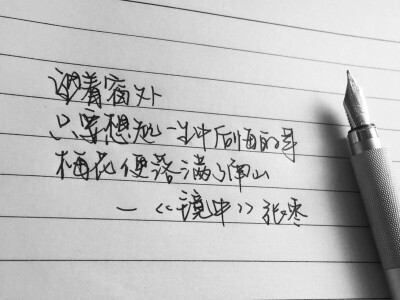 望着窗外
只要想起一生中后悔的事
梅花便落满了南山
—《镜中》张枣